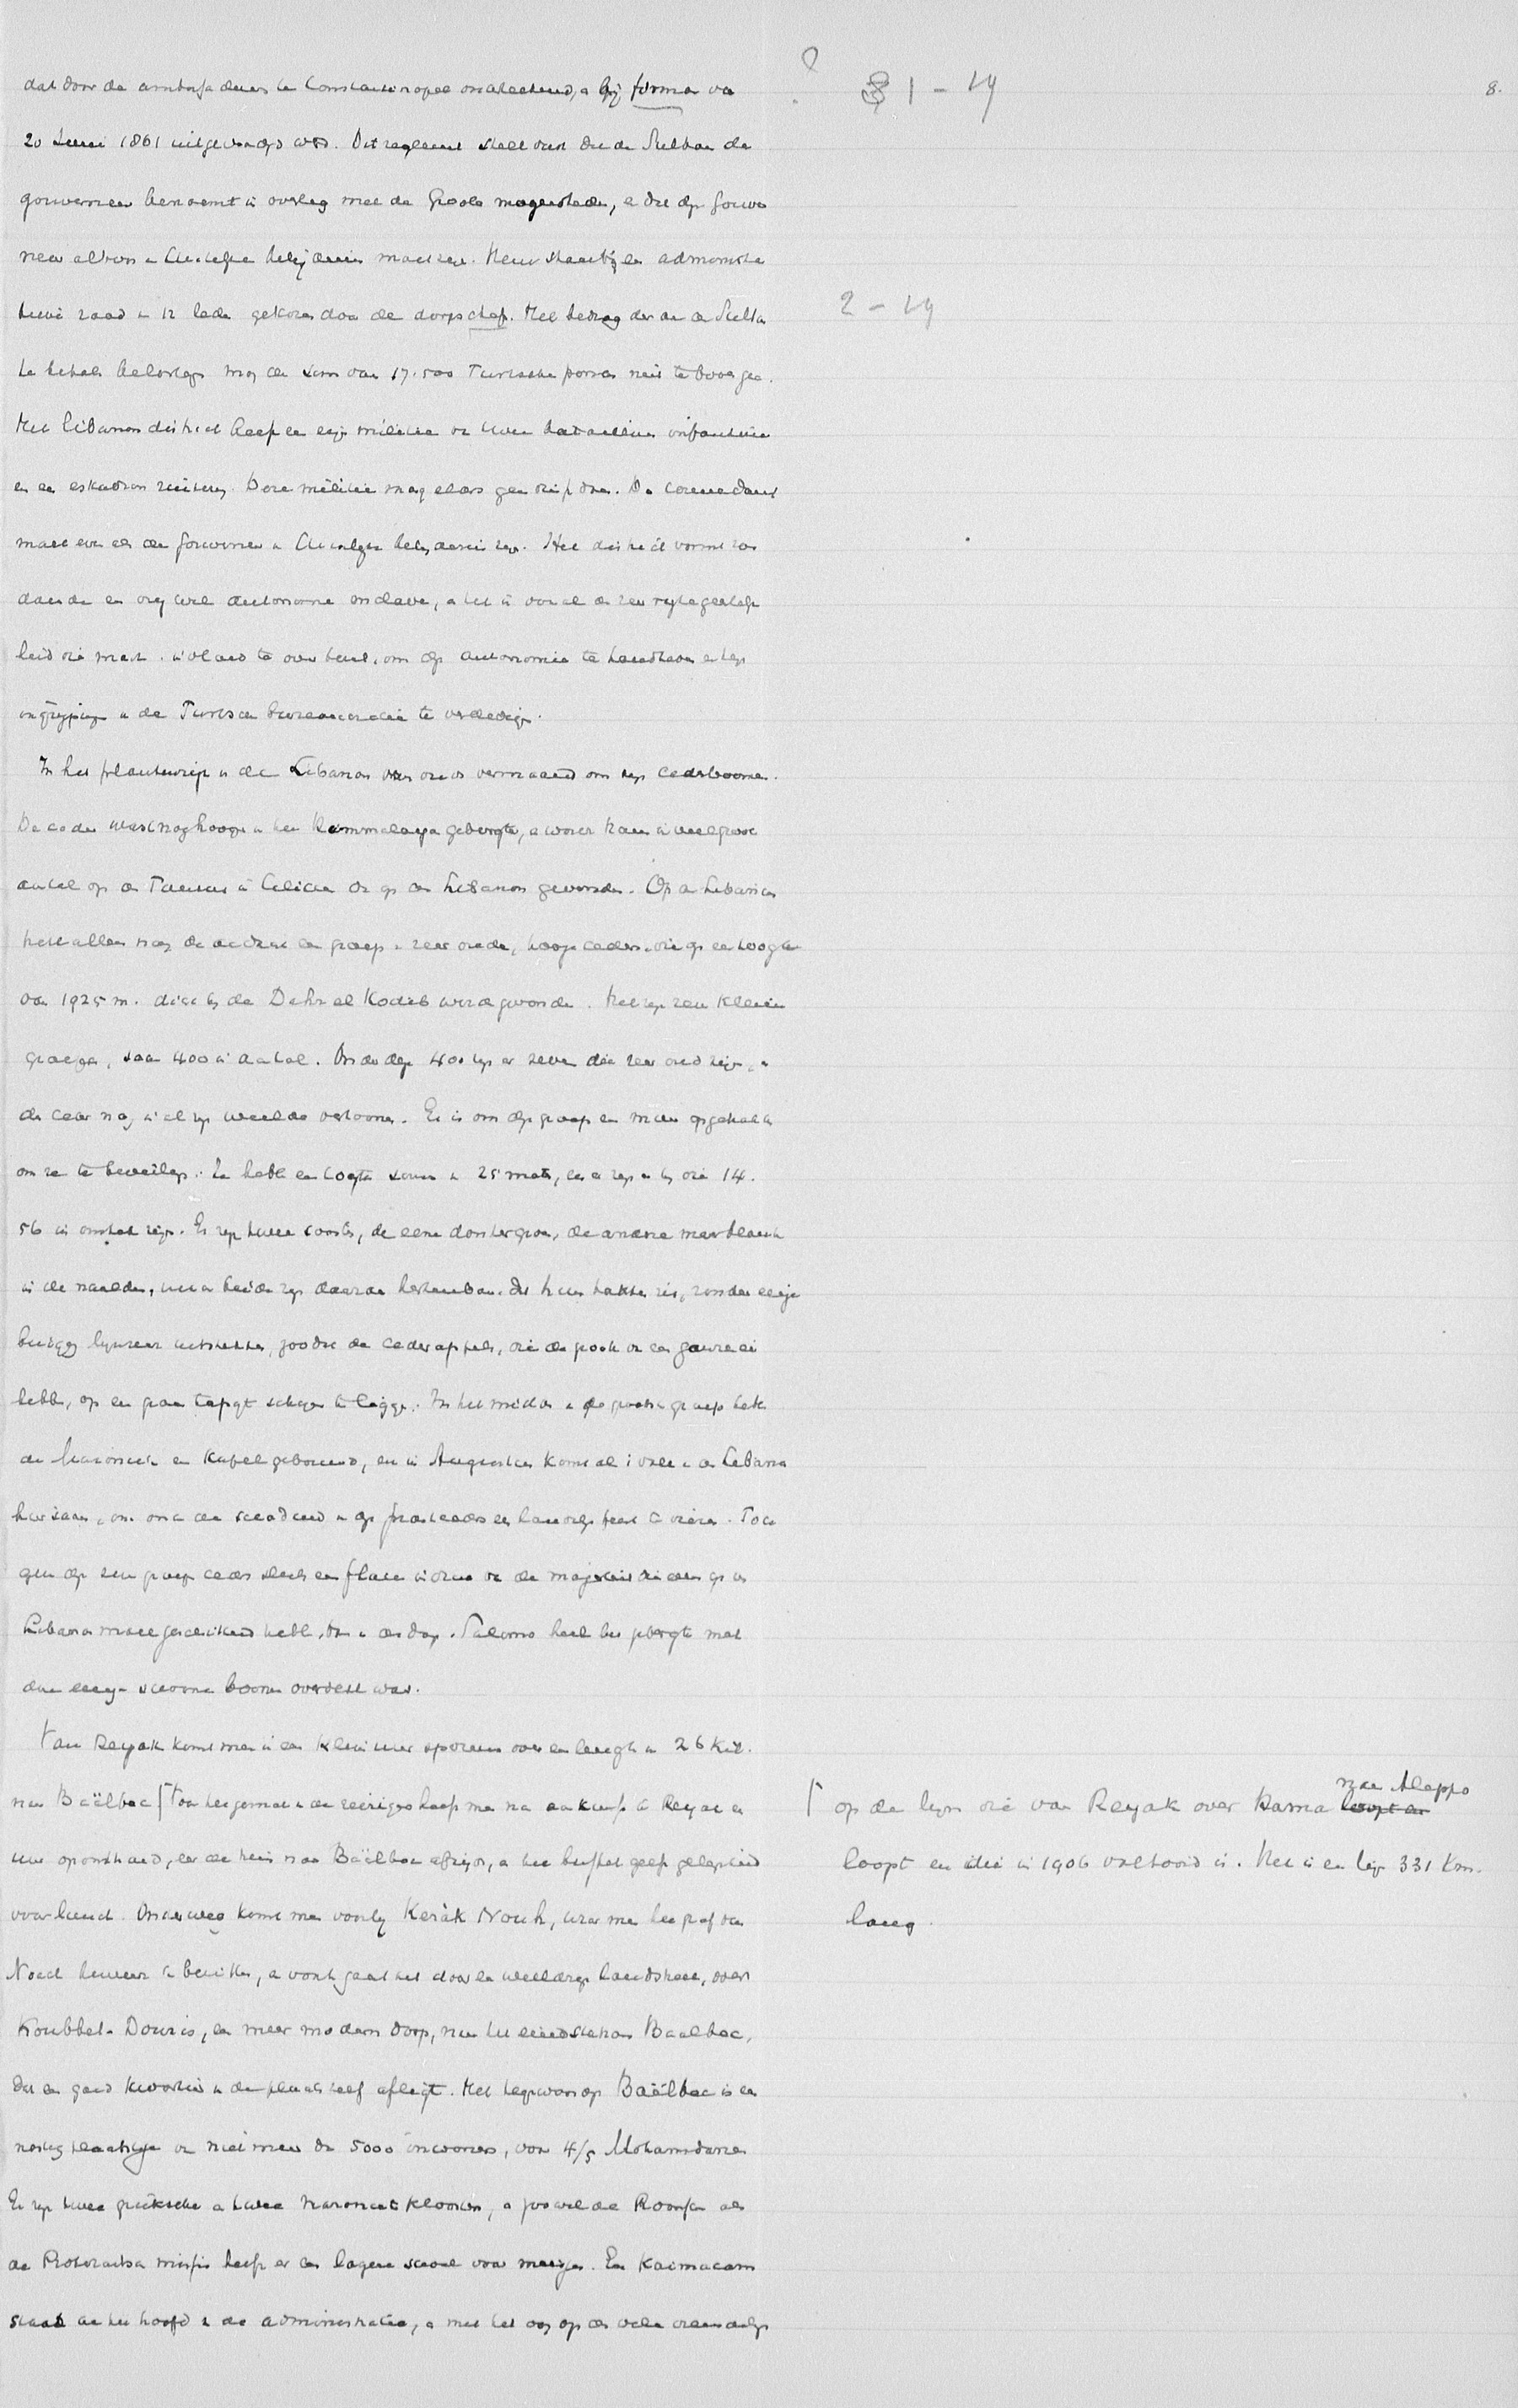 8.
31 - 19
dat door de ambassadeurs te Constantinopel onderteekend, en bij firman van
20 Juni 1861 uitgevaardigd werd. Dit reglement stelt vast dat de Sultan de
gouverneur benoemt in overleg met de Groote mogendheden, en dat deze gouver
neur altoos een Christen belijdenis moet zijn. Hem staat bij een administra
tieve raad van 12 leden gekozen door de dorpschefs. Het bedrag der aan de Sultan
2 - 19
te betalen belasting mag de som van 17.500 Turksche ponden niet te boven gaan.
Het Libanon district heeft een eigen militie van twee bataillons infanterie
en een eskadron ruiters. Deze militie mag elders geen dienst doen. De commandant
moet even als de Gouverneur Christen belijdenis zijn. Het district vormt zoo
doende een vrij wel autonome enclave, en het is vooral de zeer geestelijk
heid die macht invloed te over heeft, om deze autonomie te handhaven en tegen
ingrijping van de Turksche bureaucratie te verdedigen.
In het plantenrijk is de Libanon van ouds vermaard om zijn cederboomen.
De ceder wast nog hooger in het Himmalaya gebergte, en wordt kan in veel grooter
aantal op de Taurus in Cilicie dan op den Libanon gevonden. Op den Libanon
heeft alleen nog de aandacht een groep van zeer oude, hooge ceders, die op een hoogte
van 1925 m. dicht bij de Dahr el Kodib wordt gevonden. Het zijn zeer kleine
groepen, saam 400 in aantal. Onder deze 400 zijn er zeven die zeer oud zijn, en
de ceder nog in al zijn weelde vertoonen. Er is om deze groep een muur opgetrokken
om ze te beveiligen. Ze hebben een hoogte somtijds van 25 meter, en er zijn er bij die 14.
56 in omtrek zijn. Er zijn twee soorten, de eene donkergroen, de andere meer blauw
in de naalden, maar beide zijn daaraan herkenbaar dat hun takken zich, zonder eenige
buiging lijnrecht uitstrekken, zoodat de cederappels, die de grootte van een ganzenei
hebben, op een groen tapijt schijnen te liggen. In het midden van de grootste groep hebben
de Maronieten een kapel gebouwd, en in Augustus komt al 't volk van den Libanon
hier saam, om onder de schaduw van deze grootheden een landelijk feest te vieren. Toch
geeft deze zeer groep ceders slechts een flauw indruk van de majesteit die eens op den
Libanon moet geschitterd hebben, toen in de dagen van Salomo heel het gebergte met
deze eenige schoone boomen overdekt was.
Van Reyak komt men in een klein uur sporens over een lengte van 26 Kil.
naar Baälbec ⌈ Ten gerieve van de reizigers heeft men na aankomst te Reyak een
uur oponthoud, eer de trein naar Baälbec afrijdt, en het buffet geeft gelegenheid
voor lunch. Onderweg komt men voorbij Keràk Nouh, waar men het graf van
Noach beweert te bezitten, en voorts gaat het door een weelderige landstreek, over
Koubbet-Douris, een meer modern dorp, naar het eindstation Baalbec,
dat een goed kwartier van de plaats zelf afligt. Het tegenwoordige Baälbec is een
nestig plaatsje van niet meer dan 5000 inwoners, voor 4/5 Mohamedanen
Er zijn twee grieksche en twee Maronietkloosters, en zoowel de Roomsche als
de Protestantsche missie heeft er een lagere school voor meisjes. Een Kaimacam
staat aan het hoofd van de administratie, en met het oog op de vele vreemdelingen
⌈ op de lijn die van Reyak over Hama naar Aleppo
loopt en die in 1906 voltooid is. Het is een lijn 331 Km.
lang.